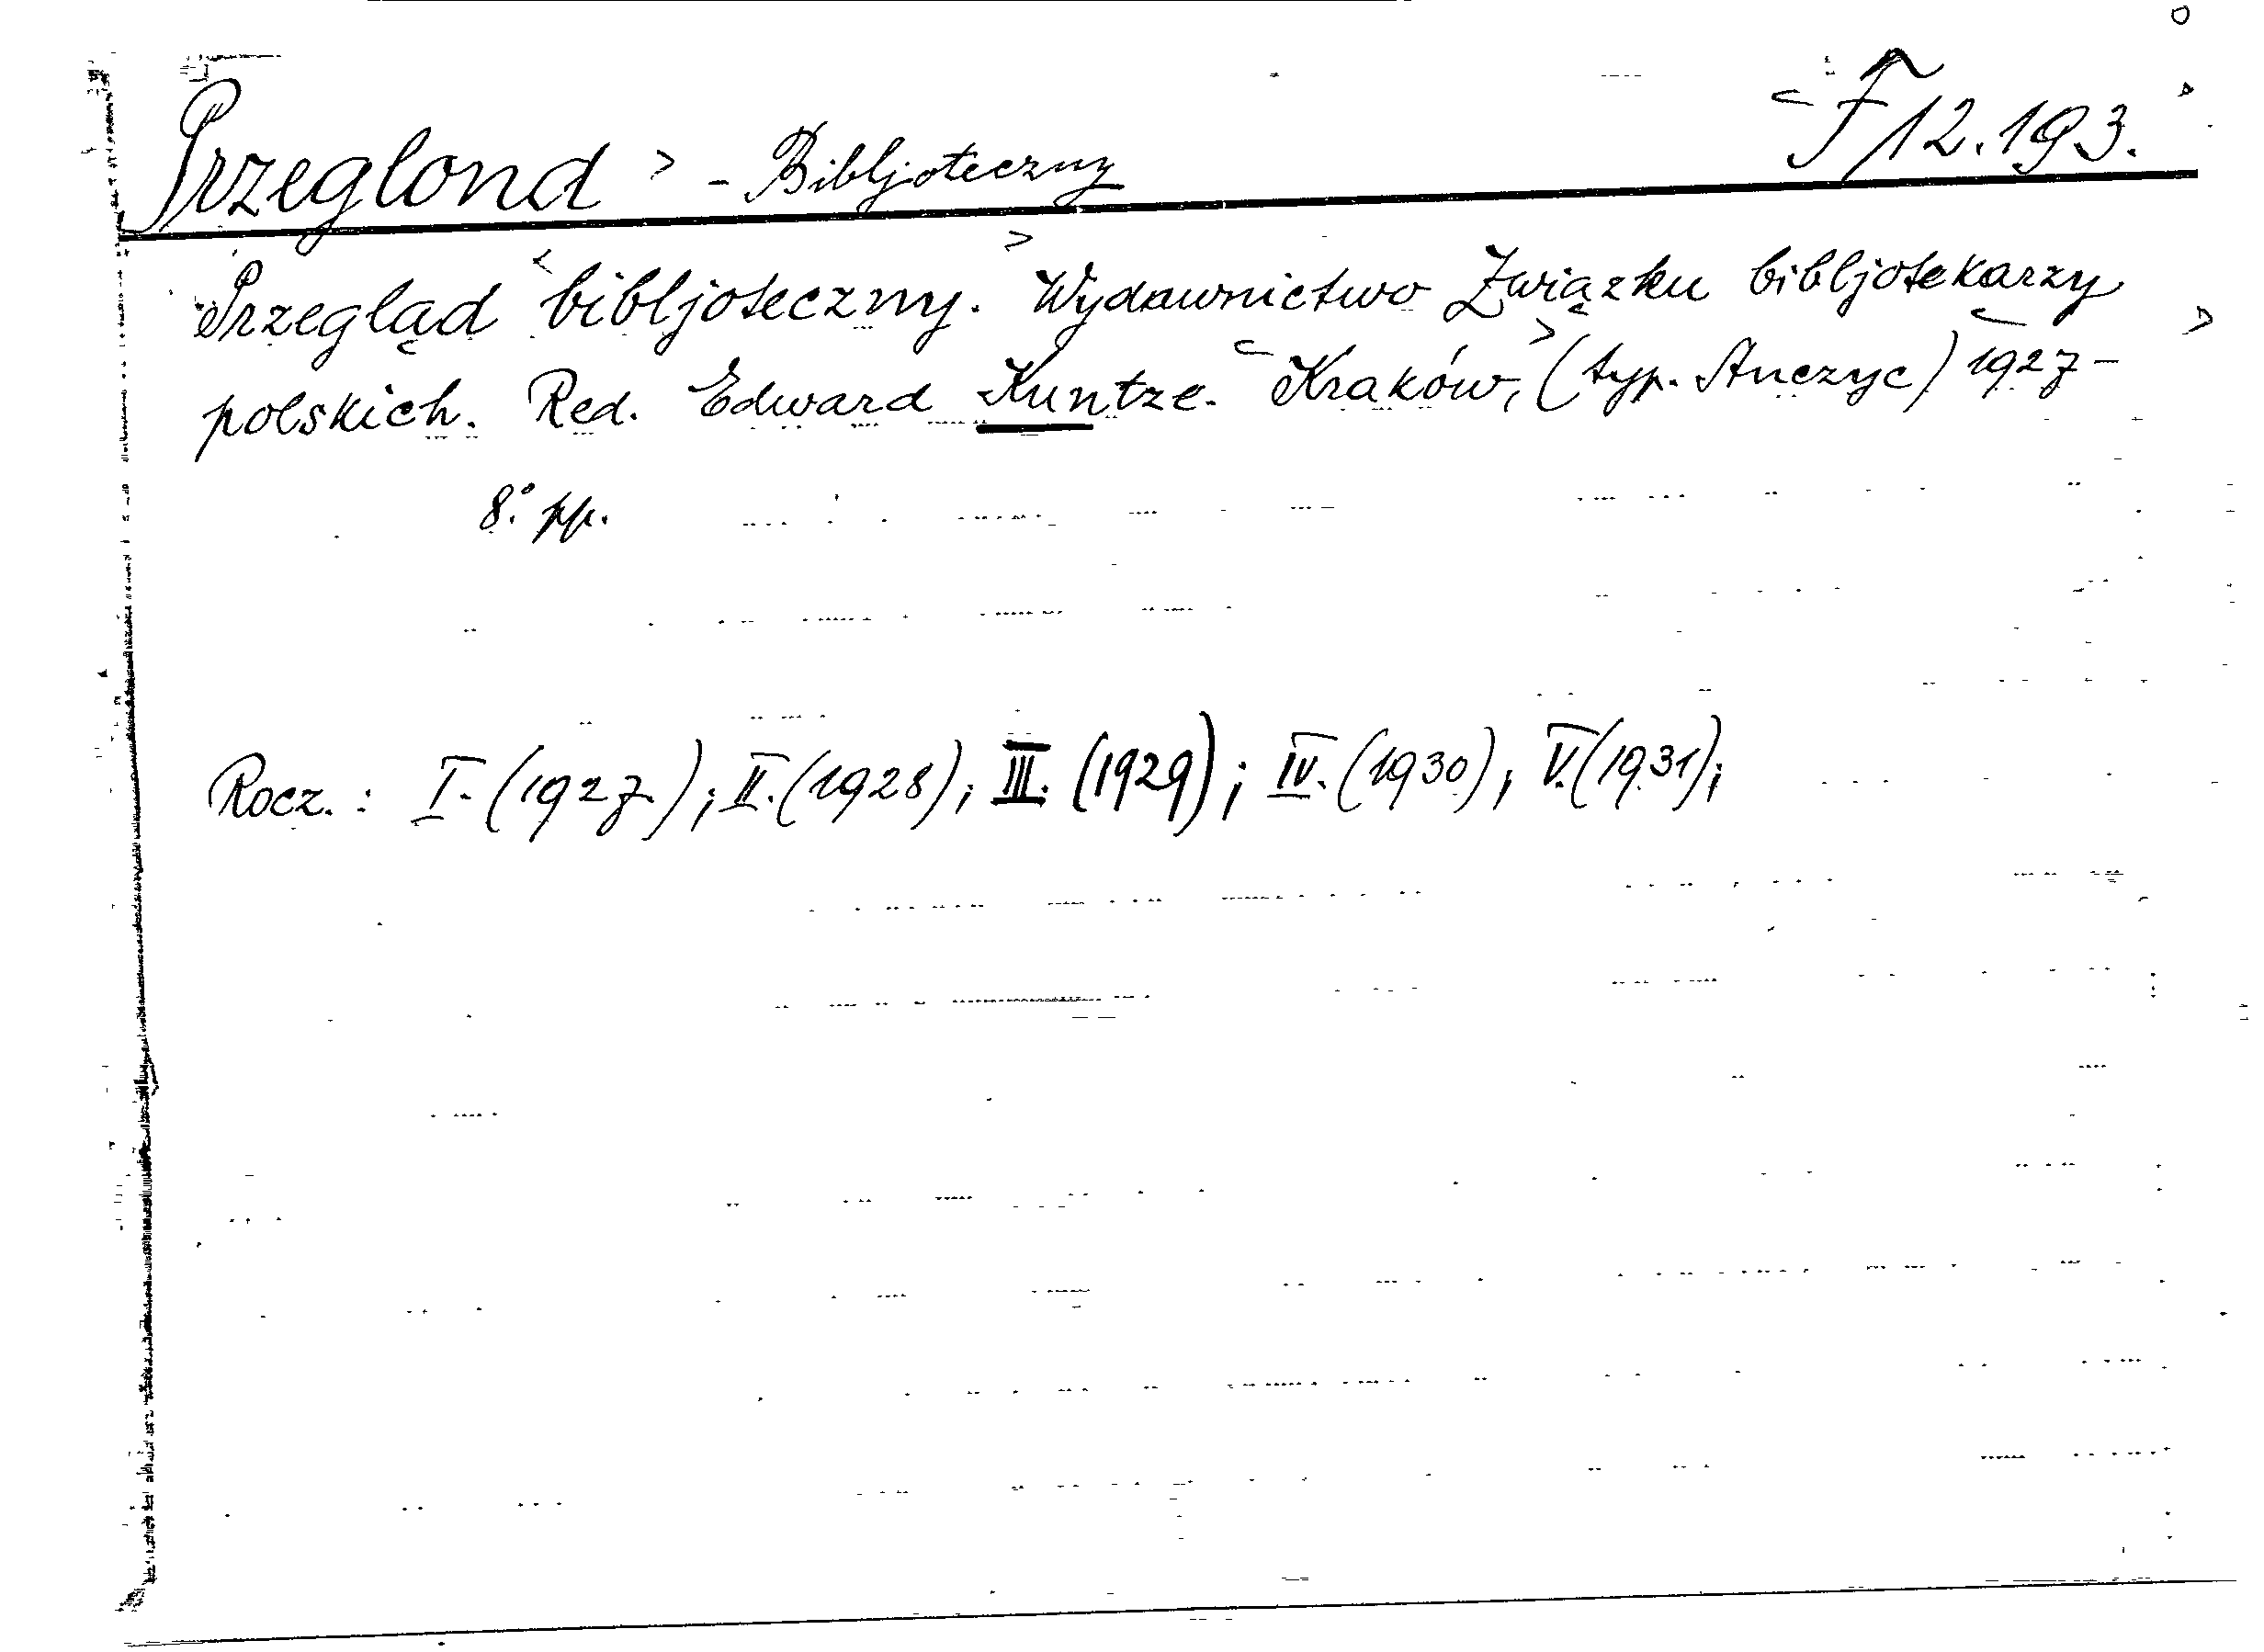 Przeglond - Bibljoteczny F 12.193.
Przegląd bibljoteczny. Wydawnictwo Związku bibljotekarzy
polskich. Red. Edward Kuntze. Kraków, (typ. Anczyc) 1927-
8° pp.
Rocz.: I. (1927.); II. (1928); III. (1929); IV. (1930); V. (1931);